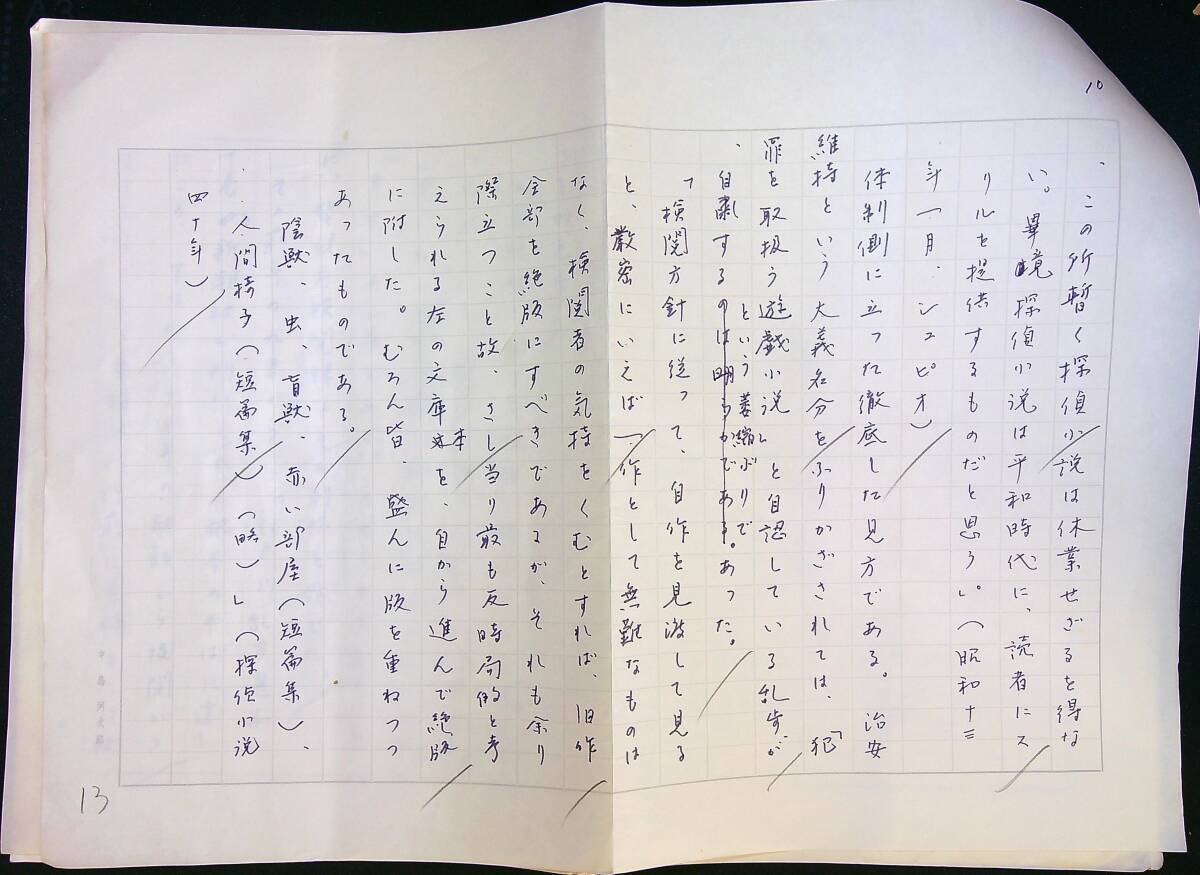 10
、この所暫く探偵小説は休業せざるを得な
い。畢境探偵小説は平和時代に、読者にス
リルを提供するものだと思う。(昭和十三
年一月、シュピオ)
体制側に立った徹底した見方である。治安
維持という大義名分をふりかざされては、「犯
罪を取扱う遊戯小説」と自認している乱歩が
という萎縮ぶりで
、自粛するのは明らかである。あった。
「検閲方針に従って、自作を見渡して見る
と、厳密にいえば一作として無難なものは
なく、検閲者の気持をくむとすれば、旧作
全部を絶版にすべきであるが、それも余り
際立つこと故、さし当り最も反時局的と考
えられる左の文庫本を、自から進んで絶版
に附した。むろん皆、盛んに版を重ねつつ
あったものである。
陰獣、虫、盲獣、赤い部屋(短篇集)、
人間椅子(短篇集)(略)」(探偵小説
四十年)
13